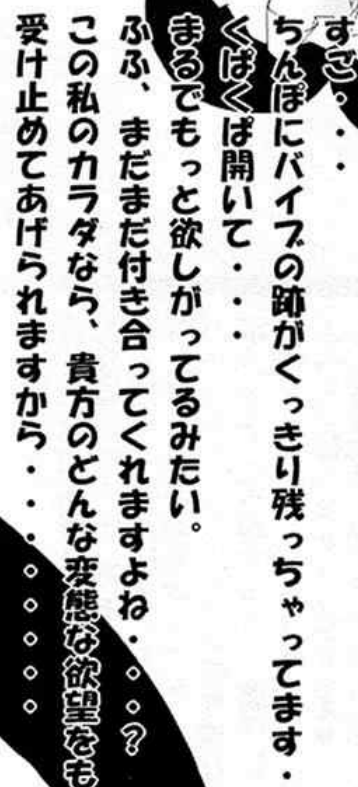 すご・・・
ちんぽにバイブの跡がくっきり残っちゃってます・
くぱくぱ開いて・・・
まるでもっと欲しがってるみたい。
ふふ、まだまだ付き合ってくれますよね・・・?
この私のカラダなら、貴方のどんな変態な欲望をも
受け止めてあげられますから・・・。。。。。